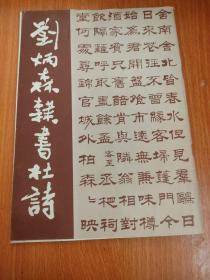 劉炳森隸書杜詩
舍南舍北皆春水但見羣鷗日
日來花徑不曾緣客掃蓬門今
始為君開盤飧市遠無兼味樽
酒家貧只舊醅肯與鄰翁相對
飲隔籬呼取盡餘杯 客至 丞相祠
堂何處尋錦官城外柏森〻映